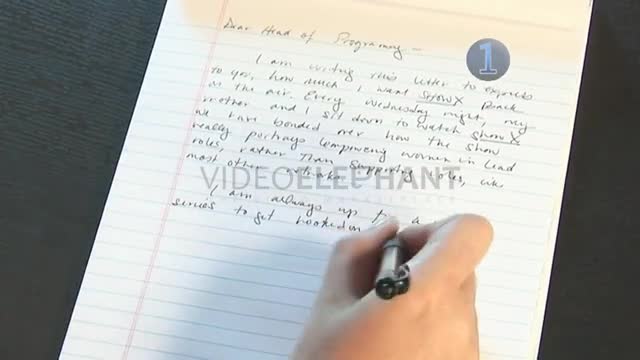 Dear Head of Programing –
1
I am writing this letter to express
to you, how much I want Show X back
on the air. Every Wednesday night, my
mother and I sit down to watch Show X
we have bonded over how the show
really portrays empowering women in lead
roles, rather than supporting roles, like
most other networks.
VIDEOELEPHANT
I am always up for a
series to get hooked on